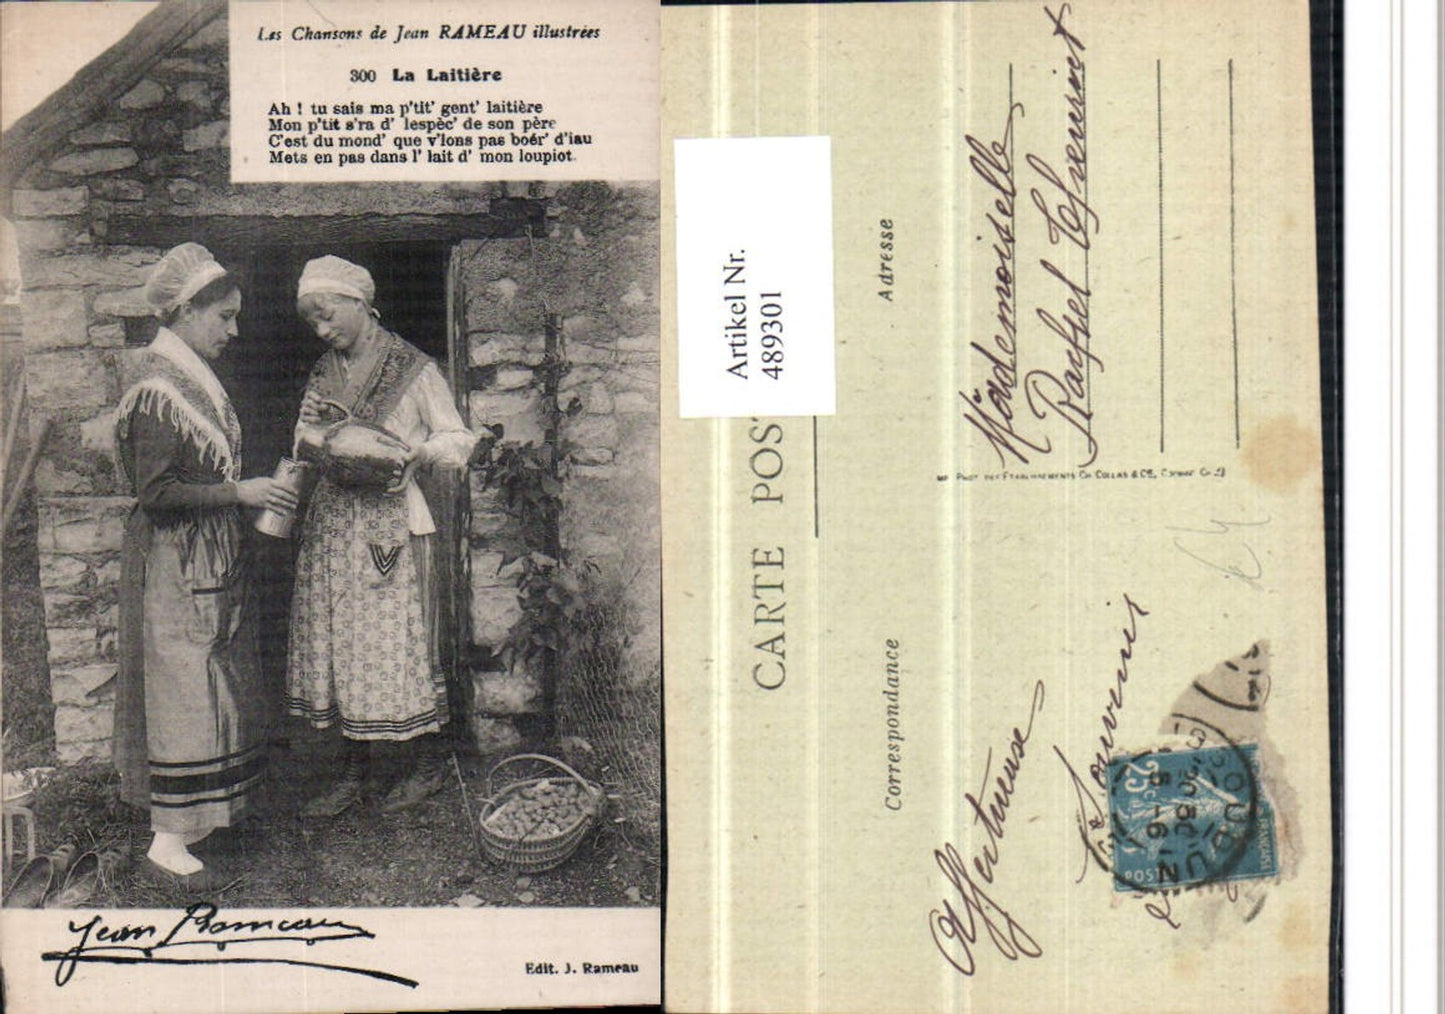 Les Chansons de Jean RAMEAU illustrées
300 La Laitière
Ah ! tu sais ma p'tit' gent' laitière
Mon p'tit s'ra d' lespèc' de son père
C'est du mond' que v'lons pas boér' d'iau
Mets en pas dans l' lait d' mon loupiot.
Jean Rameau
Edit. J. Rameau
Artikel Nr.
489301
CARTE POS
Correspondance
Adresse
Mademoiselle
Rachel
COLLAS & CIE
Affectueuse
Souvenir
25
POSTES